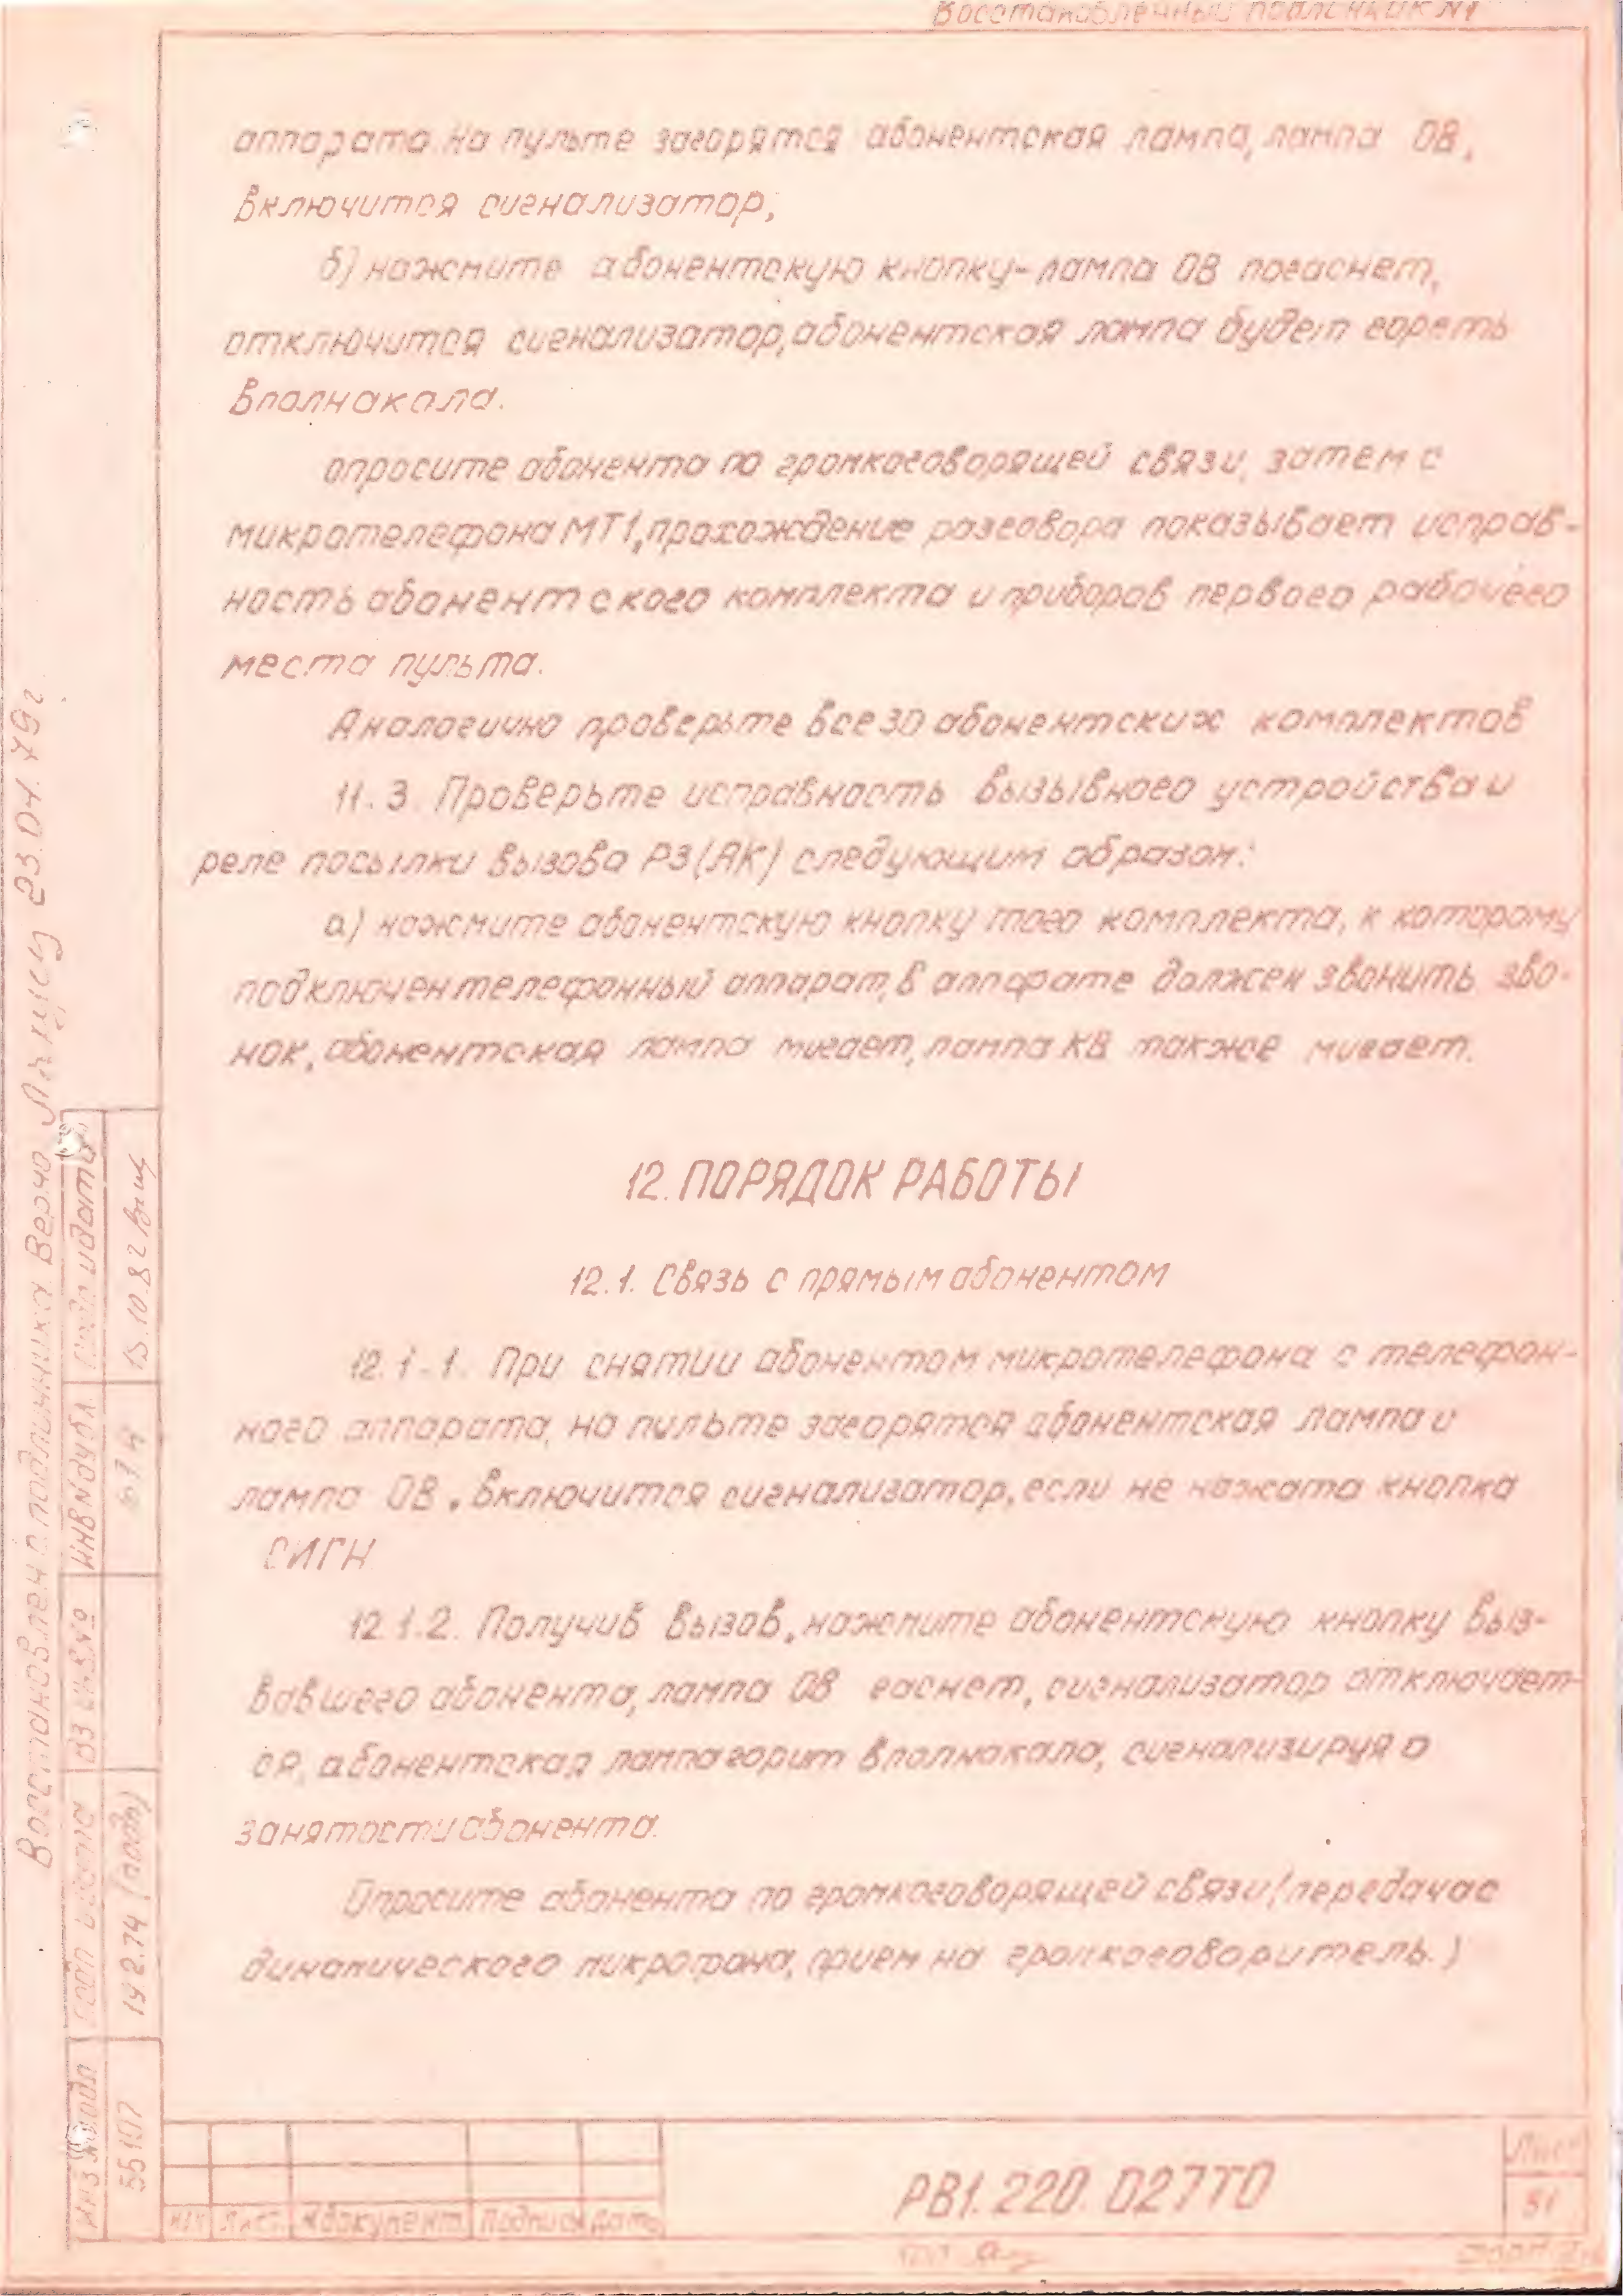 Восстановленный подлинник №1
аппарата. На пульте загорятся абонентская лампа, лампа ОВ,
включится сигнализатор;
б) нажмите абонентскую кнопку - лампа ОВ погаснет,
отключится сигнализатор, абонентская лампа будет гореть
вполнакала.
опросите абонента по громкоговорящей связи, затем с
микротелефона МТ1, прохождение разговора показывает исправ-
ность абонентского комплекта и приборов первого рабочего
места пульта.
Аналогично проверьте все 30 абонентских комплектов
11.3. Проверьте исправность вызывного устройства и
реле посылки вызова Р3(АК) следующим образом:
а) нажмите абонентскую кнопку того комплекта, к которому
подключен телефонный аппарат, в аппарате должен звонить зво-
нок, абонентская лампа мигает, лампа КВ также мигает.
12. ПОРЯДОК РАБОТЫ
12.1. Связь с прямым абонентом
12.1.1. При снятии абонентом микротелефона с телефон-
ного аппарата, на пульте загорятся абонентская лампа и
лампа ОВ, включится сигнализатор, если не нажата кнопка
СИГН
12.1.2. Получив вызов, нажмите абонентскую кнопку выз-
вавшего абонента, лампа ОВ гаснет, сигнализатор отключает-
ся, абонентская лампа горит вполнакала, сигнализируя о
занятости абонента.
Опросите абонента по громкоговорящей связи (передача с
динамического микрофона, прием на громкоговоритель.)
Восстановлен с подлинника. Верно 23.04.79г.
Подп и дата
15.10.82
Инв № дубл.
Вз инв №
Подп и дата
19.2.74 (подп)
Инв № подл
55107
Изм Лист № документ Подпись Дата
РВ1.220.027ТО
Лист
51